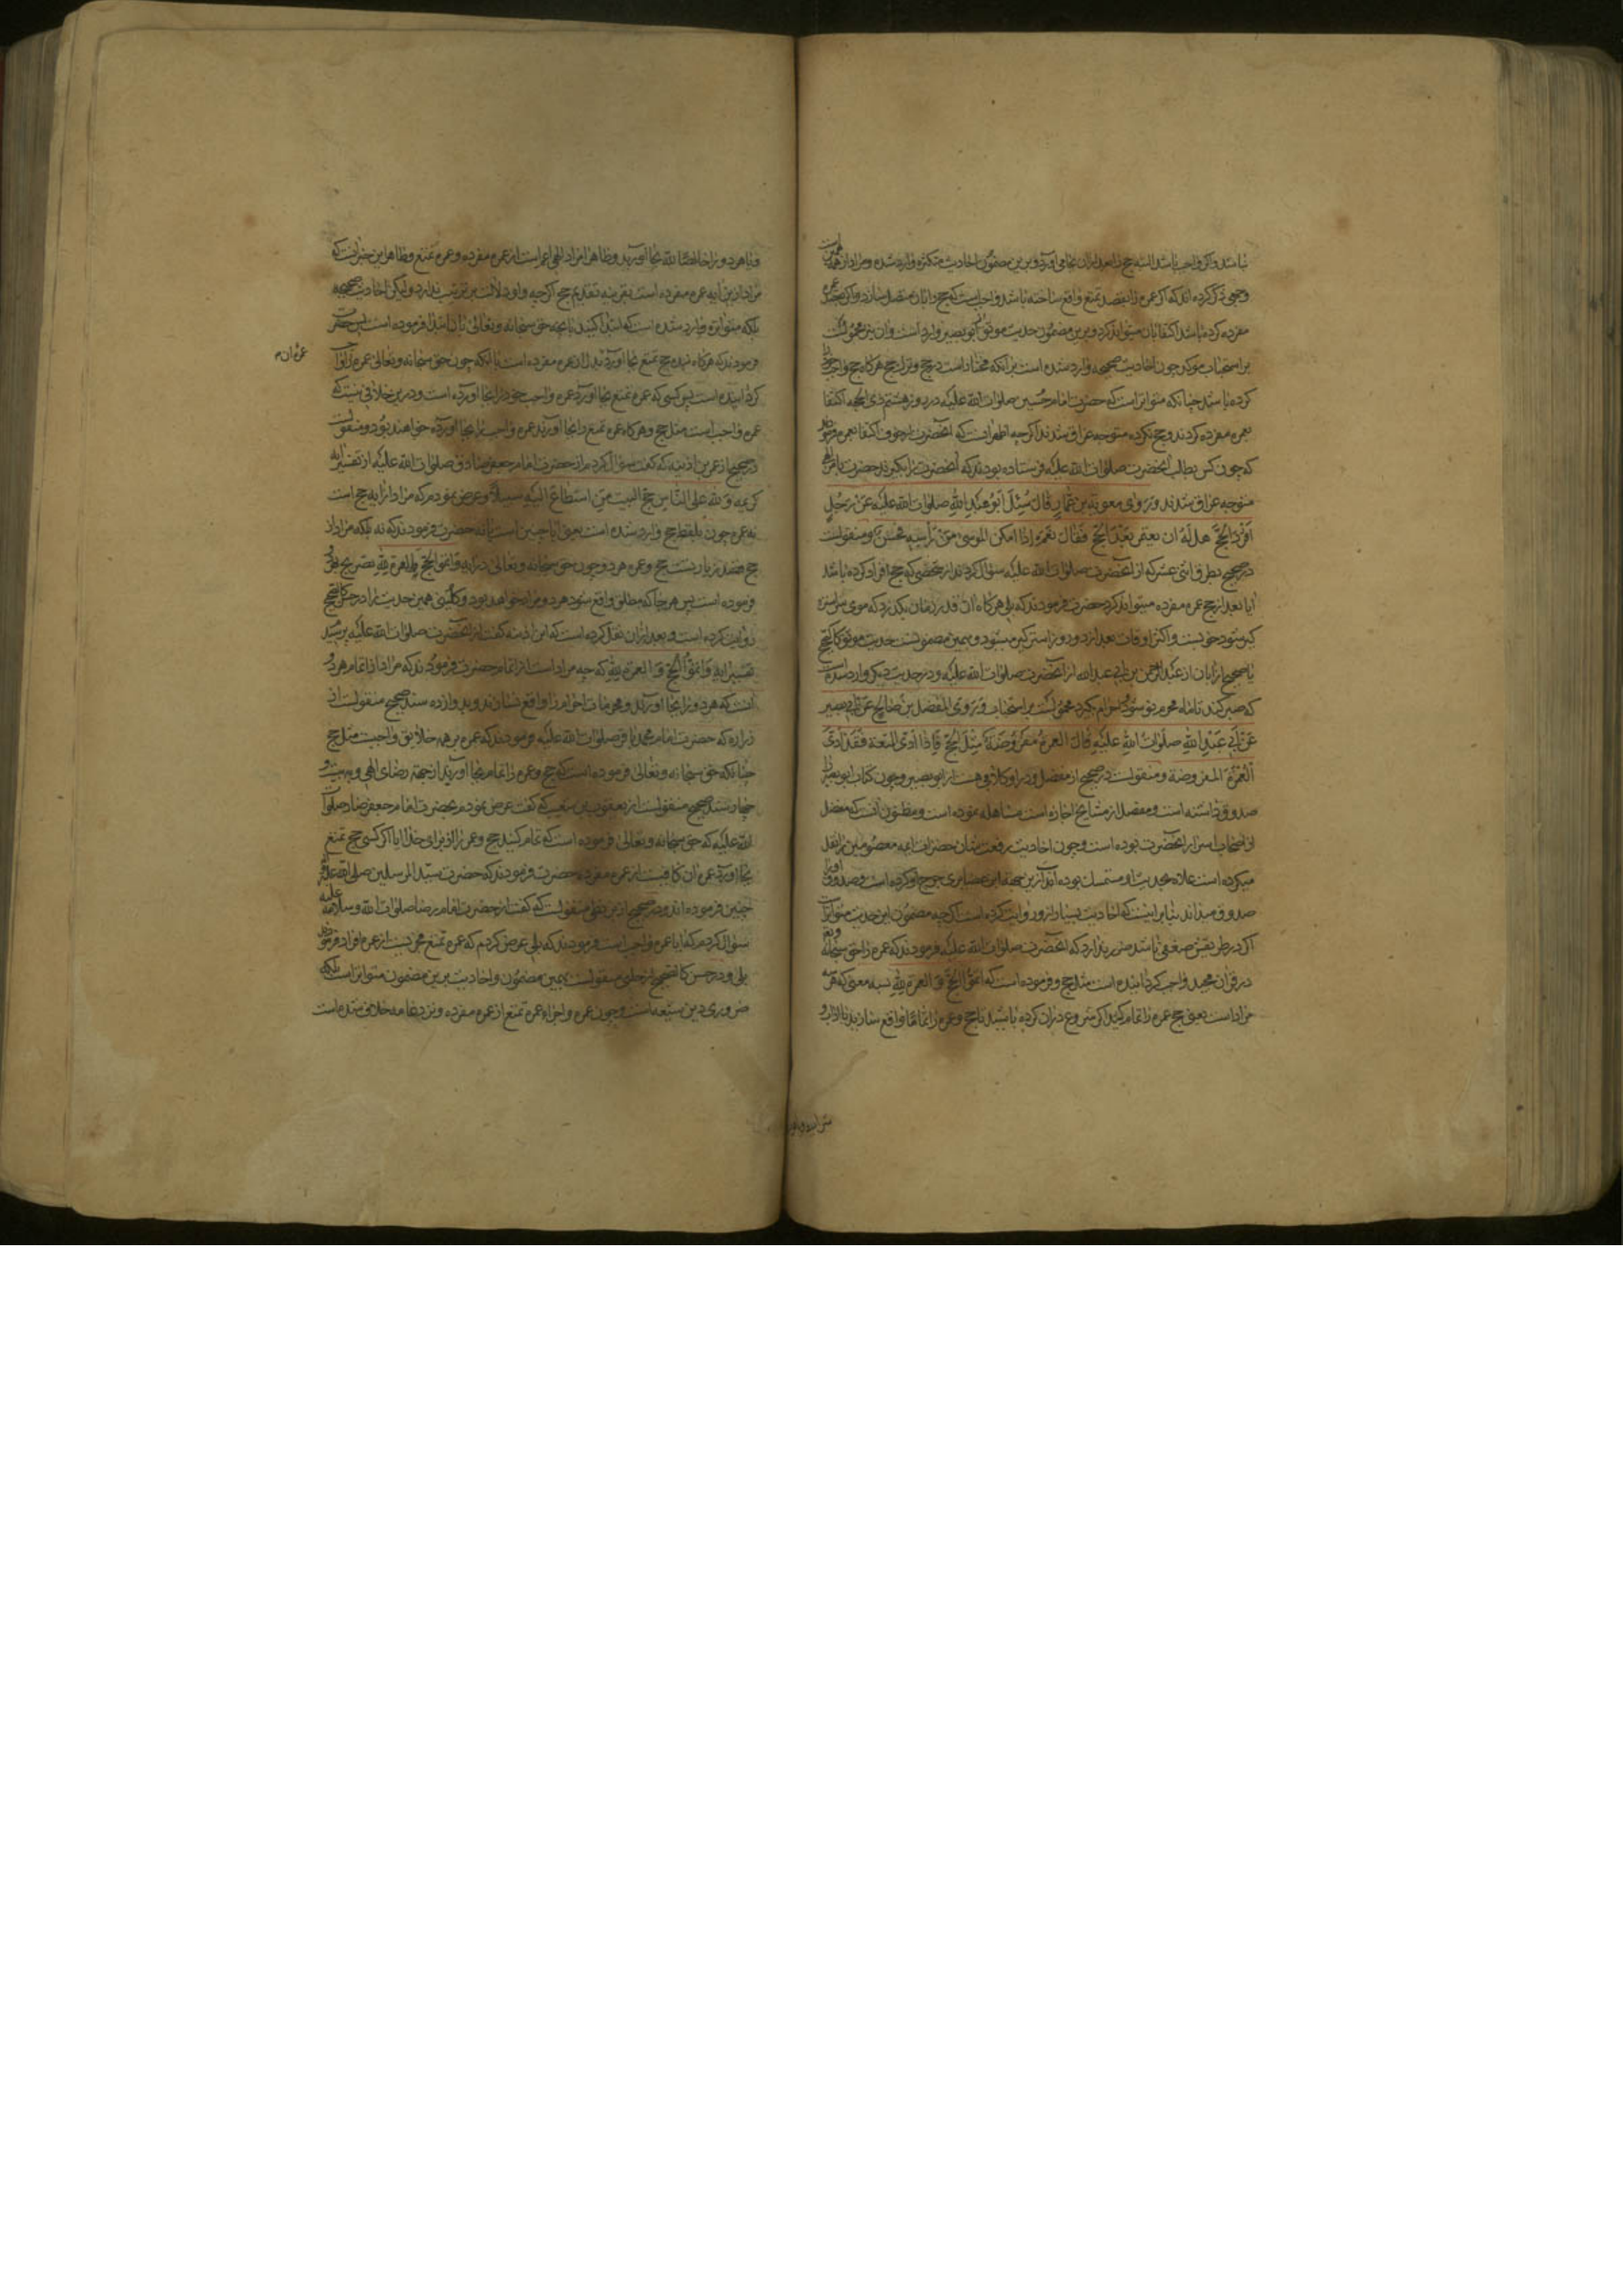 نباشد و اگر واجب باشد البته حج را بعد از ان بجا می آورد و برین مضمون احادیث متکثره وارد شده و مراد از
وجهی ذکر کرده اند که اگر عمره را بقصد تمتع واقع ساخته باشد واجب است که حج را بان متصل سازد و اگر بقصد عمره
مفرده کرده باشد اکتفا بان میتواند کرد و برین مضمون حدیث موثق ابو بصیر وارد است و ان نیز محمولست
بر استحباب مؤکد چون احادیث صحیحه وارد شده است بر آنکه مختار است در حج و ترک حج هر گاه حج واجب را
کرده باشد چنانکه متواتر است که حضرت امام حسین صلوات الله علیه در روز هشتم ذی الحجه اکتفا
بعمره مفرده کردند و حج نکرده متوجه عراق شدند اگر چه اظهر انست که آنحضرت از خوف اکتفا بعمره فرمودند
که چون کس بطلب آنحضرت صلوات الله علیه فرستاده بودند که آنحضرت را بگیرند حضرت
متوجه عراق شدند و روی معویة بن عمار قال سئل ابو عبد الله صلوات الله علیه عن رجل
افرد الحج هل له ان یعتمر بعد الحج فقال نعم اذا امکن الموسی من راسه فحسن و منقولست
در صحیح بطرق اثنی عشر که از آنحضرت صلوات الله علیه سؤال کردند از شخصی که حج افراد کرده باشد
ایا بعد از حج عمره مفرده میتواند کرد حضرت فرمودند که بلی هر گاه ان قدر زمان بگذرد که موی سر
گیر شود خوبست و اکثر اوقات بعد از دو روز استره گیر میشود و بهمین مضمونست حدیث موثق کالصحیح
یا صحیح از ابان از عبد الرحمن بن ابی عبد الله از آنحضرت صلوات الله علیه و در حدیث دیگر وارد شده است
که صبر کند تا ماه محرم نو شود احرام بگیرد محمولست بر استحباب و روی المفضل بن صالح عن ابی بصیر
عن ابی عبد الله صلوات الله علیه قال العمرة مفروضة مثل الحج فاذا ادی المتعة فقد ادی
العمرة المفروضة و منقولست در صحیح از مفضل و در او کلامی هست از ابو بصیر و چون کتاب ابو بصیر را
صدوق داشته است و مفضل از مشایخ اجازه است مساهله نموده است و مظنون آنست که مفضل
از اصحاب اسرار آنحضرت بوده است و چون احادیث رفعت شان حضرات ائمه معصومین را نقل
میکرده است غلاة بحدیث او متمسک بوده اند ازین جهة ابن غضایری جرح او کرده است و صدوق او را
صدوق میداند بنابر اینست که احادیث بسیار ازو روایت کرده است اگر چه مضمون این حدیث متواتر است
اگر در طریقش ضعفی باشد ضرر ندارد که آنحضرت صلوات الله علیه فرمودند که عمره را حق سبحانه و تعالی
در قران مجید واجب گردانیده است مثل حج و فرموده است که اتموا الحج و العمرة لله بسه معنی که هر سه
مراد است یعنی حج عمره را تمام کنید اگر شروع در ان کرده باشید یا حج و عمره را تماما واقع سازید با اداب و
و یا هر دو را خالصا لله بجا آورید و ظاهرا مراد الهی اعم است از عمره مفرده و عمره تمتع و ظاهر این خبر آنست که
مراد ازین آیه عمره مفرده است بقرینه تقدیم حج اگر چه واو دلالت بر ترتیب ندارد و لیکن احادیث صحیحه
بلکه متواتره وارد شده است که ابتدا کنید بآنچه حق سبحانه و تعالی بان ابتدا فرموده است پس حضرت
فرمودند که هر گاه بنده حج تمتع بجا آورد بدل از عمره مفرده است یا آنکه چون حق سبحانه و تعالی عمره را واجب
عمره ان م
گردانیده است پس کسی که عمره تمتع بجا آورد عمره واجب خود را بجا آورده است و درین خلافی نیست که
عمره واجب است مثل حج و هر گاه عمره تمتع را بجا آورند عمره واجب را بجا آورده خواهند بود و منقولست
در صحیح از عمر بن اذینه که گفت سؤال کردم از حضرت امام جعفر صادق صلوات الله علیه از تفسیر آیه
کریمه و لله علی الناس حج البیت من استطاع الیه سبیلا و عرض نمودم که مراد از ایه حج است
نه عمره چون بلفظ حج وارد شده است یعنی ایا چنین است یا نه حضرت فرمودند که نه بلکه مراد از
حج قصد زیارتست حج و عمره هر دو چون حق سبحانه و تعالی در آیه و اتموا الحج و العمرة لله تصریح بهر دو
فرموده است پس هر جا که مطلق واقع شود هر دو مراد خواهد بود و کلینی همین حدیث را در حسن کالصحیح
روایت کرده است و بعد از ان نقل کرده است که ابن اذینه گفت از آنحضرت صلوات الله علیه پرسید
تفسیر ایه و اتموا الحج و العمرة لله که چه مراد است از اتمام حضرت فرمودند که مراد از اتمام هر دو
آنست که هر دو را بجا آورند و محرمات احرام را واقع نسازند و بدوازده سند صحیح منقولست از
زراره که حضرت امام محمد باقر صلوات الله علیه فرمودند که عمره بر همه خلایق واجبست مثل حج
چنانکه حق سبحانه و تعالی فرموده است که حج و عمره را تمام بجا آورید از جهة رضای الهی و به بیست و
چهار سند صحیح منقولست از یعقوب بن شعیب که گفت عرض نمودم بحضرت امام جعفر صادق صلوات
الله علیه که حق سبحانه و تعالی فرموده است که تمام کنید حج و عمره را از برای خدا ایا اگر کسی حج تمتع
بجا آورد عمره ان کافیست از عمره مفرده حضرت فرمودند که حضرت سید المرسلین صلی الله علیه و آله
چنین فرموده اند و در صحیح از بزنطی منقولست که گفت از حضرت امام رضا صلوات الله و سلامه علیه
سؤال کردم که ایا عمره واجب است فرمودند که بلی عرض کردم که عمره تمتع مجزیست از عمره افراد فرمودند
بلی و در حسن کالصحیح از حلبی منقولست بهمین مضمون و احادیث برین مضمون متواتر است بلکه
ضروری دین شیعه است وجوب عمره و اجزاء عمره تمتع از عمره مفرده و نزد عامه خلافی شده است